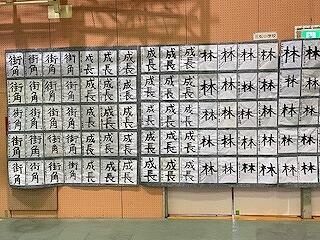 街角 街角 街角 街角 成長 成長 成長 成長 成長 成長 林 林 林 林 林 林
街角 街角 街角 街角 成長 成長 成長 成長 成長 成長 林 林 林 林 林 林
街角 街角 街角 街角 成長 成長 成長 成長 成長 成長 林 林 林 林 林 林
街角 街角 街角 街角 成長 成長 成長 成長 成長 成長 林 林 林 林 林 林
街角 街角 街角 街角 成長 成長 成長 成長 成長 成長 林 林 林 林 林 林